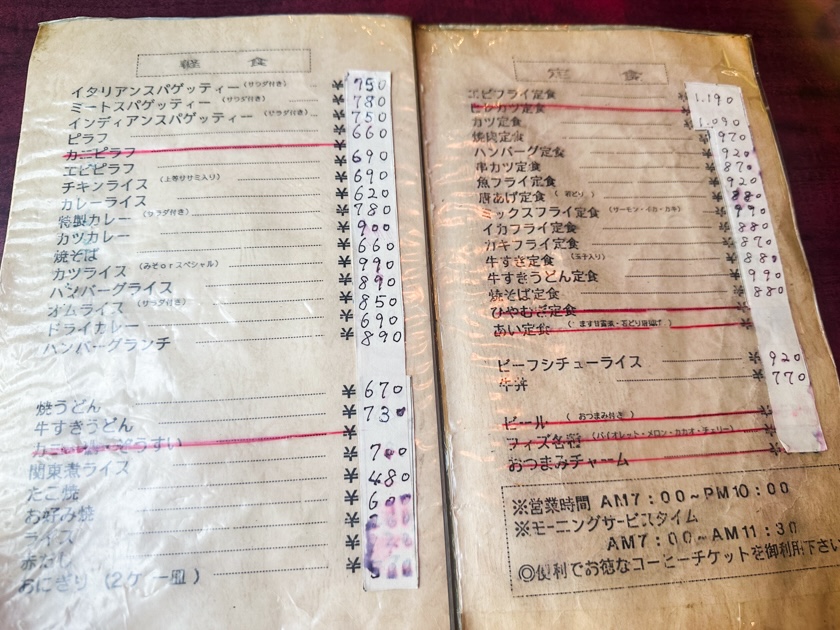 軽 食
イタリアンスパゲッティー (サラダ付き) ¥ 750
ミートスパゲッティー (サラダ付き) ¥ 780
インディアンスパゲッティー (サラダ付き) ¥ 750
ピラフ ¥ 660
カニピラフ
エビピラフ ¥ 690
チキンライス (上等ササミ入り) ¥ 690
カレーライス ¥ 620
特製カレー (サラダ付き) ¥ 780
カツカレー ¥ 900
焼そば ¥ 660
カツライス (みそorスペシャル) ¥ 990
ハンバーグライス ¥ 890
オムライス (サラダ付き) ¥ 850
ドライカレー ¥ 690
ハンバーグランチ ¥ 890
焼うどん ¥ 670
牛すきうどん ¥ 730
ぞうすい ¥
関東煮ライス ¥ 700
たこ焼 ¥ 480
お好み焼 ¥
ライス ¥
赤だし ¥
おにぎり (2ケ一皿) ¥
定 食
エビフライ定食 ¥ 1.190
ヒレカツ定食
カツ定食 ¥ 1.090
焼肉定食 ¥ 970
ハンバーグ定食 ¥ 920
串カツ定食 ¥ 870
魚フライ定食 ¥ 920
唐あげ定食 (若どり) ¥ 880
ミックスフライ定食 (サーモン・イカ・カキ) ¥ 990
イカフライ定食 ¥ 880
カキフライ定食 ¥ 870
牛すき定食 (玉子入り) ¥ 880
牛すきうどん定食 ¥ 990
焼そば定食 ¥ 880
ひやむぎ定食 ¥
あい定食 ¥
ビーフシチューライス ¥ 920
牛丼 ¥ 770
ビール (おつまみ付き) ¥
フィズ各種 (バイオレット・メロン・カカオ・チェリー) ¥
おつまみチャーム ¥
※営業時間 AM7：00~PM10：00
※モーニングサービスタイム
AM7：00~AM11：30
◎便利でお徳なコーヒーチケットを御利用下さい